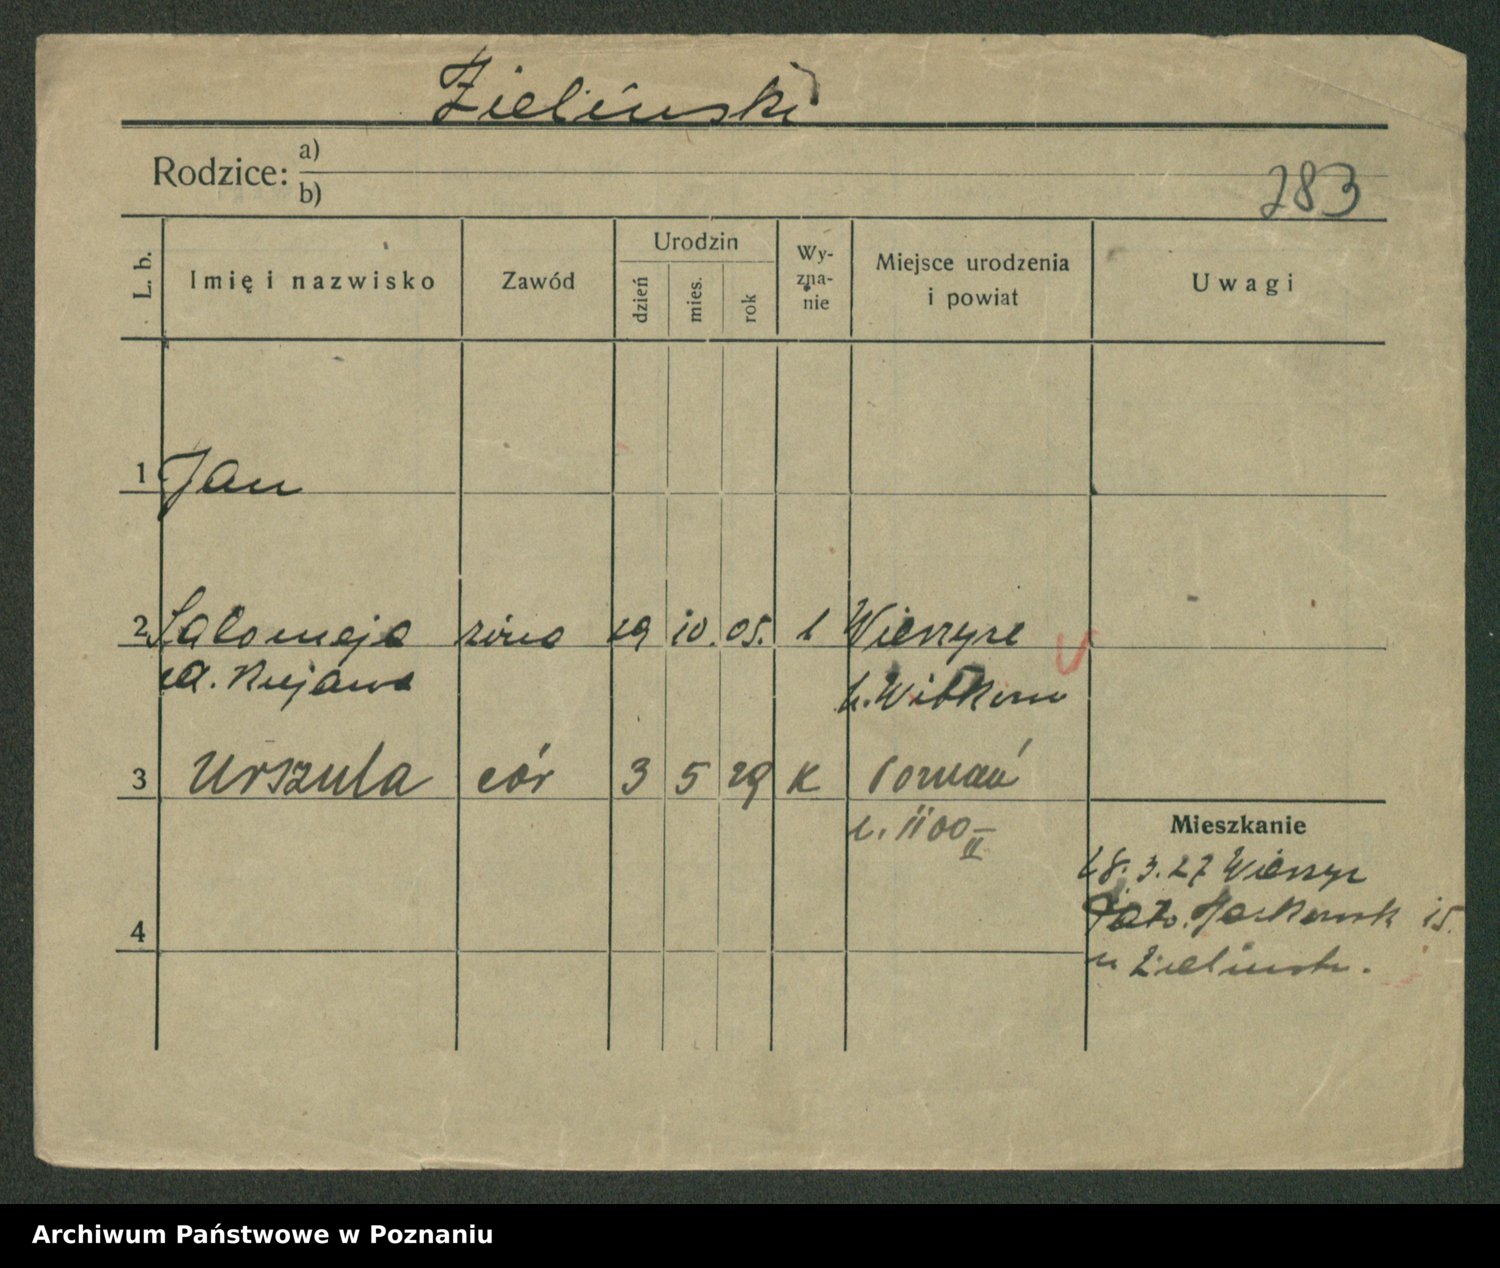 Zieliński
Rodzice: a)
b)
283
L. b.
Imię i nazwisko
Zawód
Urodzin
dzień
mies.
rok
Wy-
zna-
nie
Miejsce urodzenia
i powiat
Uwagi
1 Jan
2 Salomeja żona 19 10. 05. k Wierzyce
p. Witkowo
3 Urszula cór 3 5 29 K Poznań
u. 1100 II
Mieszkanie
28. 3. 27 Wierzyc
15.
u Zielinsk.
4
Archiwum Państwowe w Poznaniu